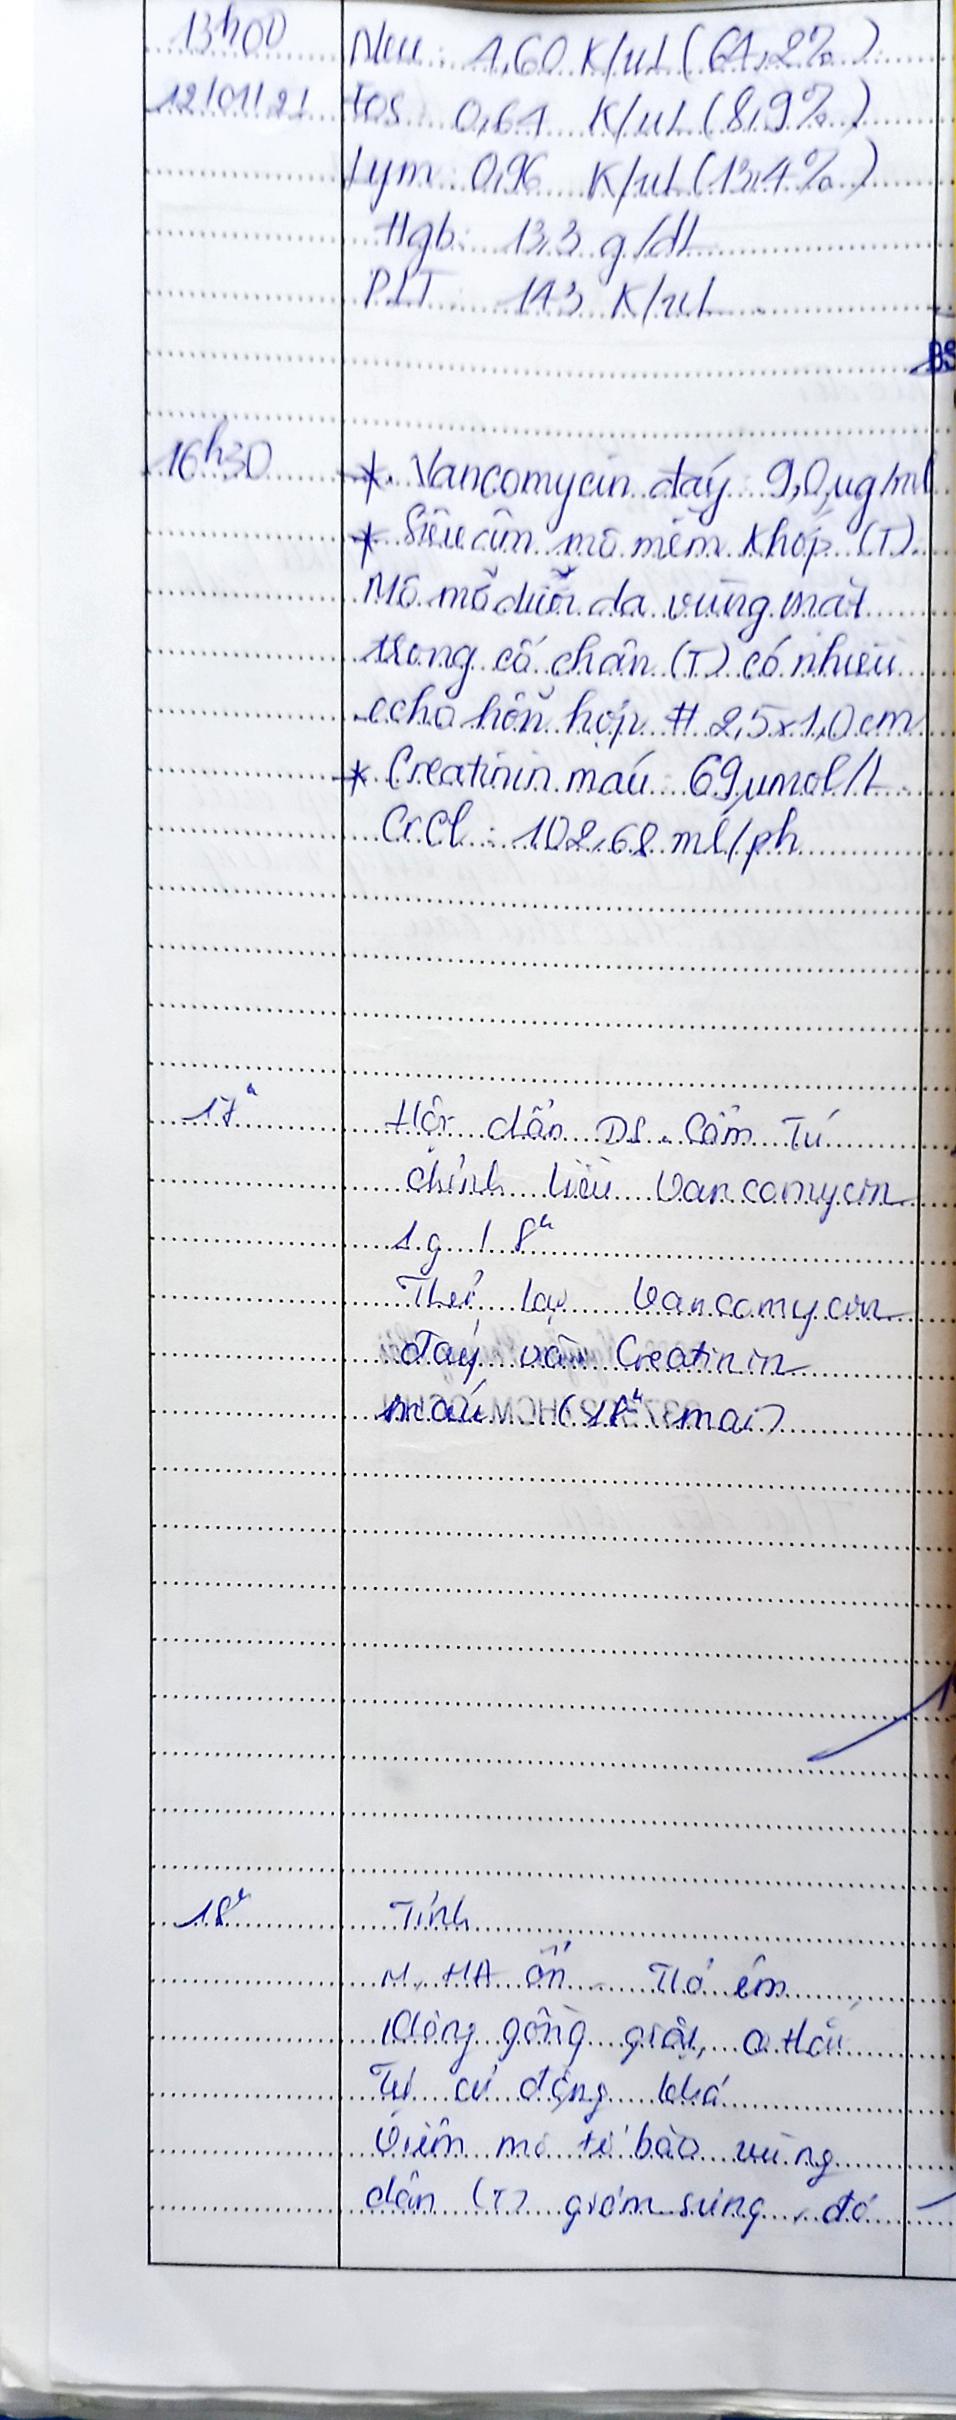 13h00 Neu: 4,60 K/uL (64,2%)
12/01/21 Eos 0,64 K/uL (8,9%)
Lym: 0,96 K/uL (13,4%)
Hgb: 13,3 g/dL
PLT: 143 K/uL
BS
16h30 * Vancomycin đáy: 9,0 µg/ml
* Siêu âm mô mềm khớp (T).
Mô mỡ dưới da vùng mặt
trong cổ chân (T) có nhiều
echo hỗn hợp # 2,5x1,0cm
* Creatinin máu: 69 µmol/L
CrCl: 102,68 ml/ph
17h Hội chẩn DS. Cẩm Tú
chỉnh liều Vancomycin
1g / 8h
Thử lại Vancomycin
đáy và Creatinin
máu (18h mai)
18h Tỉnh
M, HA ổn Thở êm
Không gồng giật,
Tự cử động khá
Viêm mô tế bào vùng
chân (T) giảm sưng, đỏ